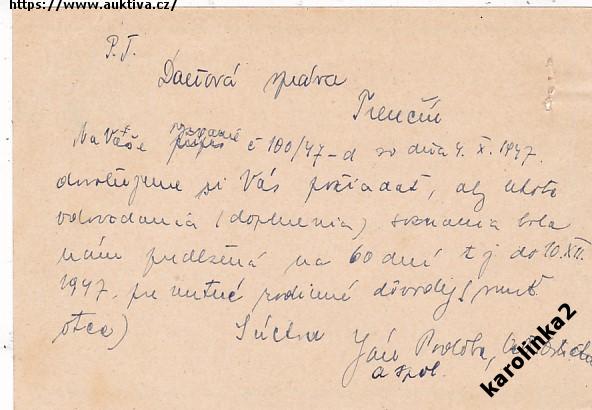 https://www.auktiva.cz/
P.T.
Daňová správa
Trenčín
Na Vaše č 100/47-d zo dňa 4. X. 1947.
dovoľujeme si Vás požiadať, aby lehota
odovzdania (doplnenia) soznania bola
nám predĺžená na 60 dní t j do 10.XII.
1947. pre nutné rodinné dôvody (smrť
otca) Súcta Ján
a spol.
karolinka2